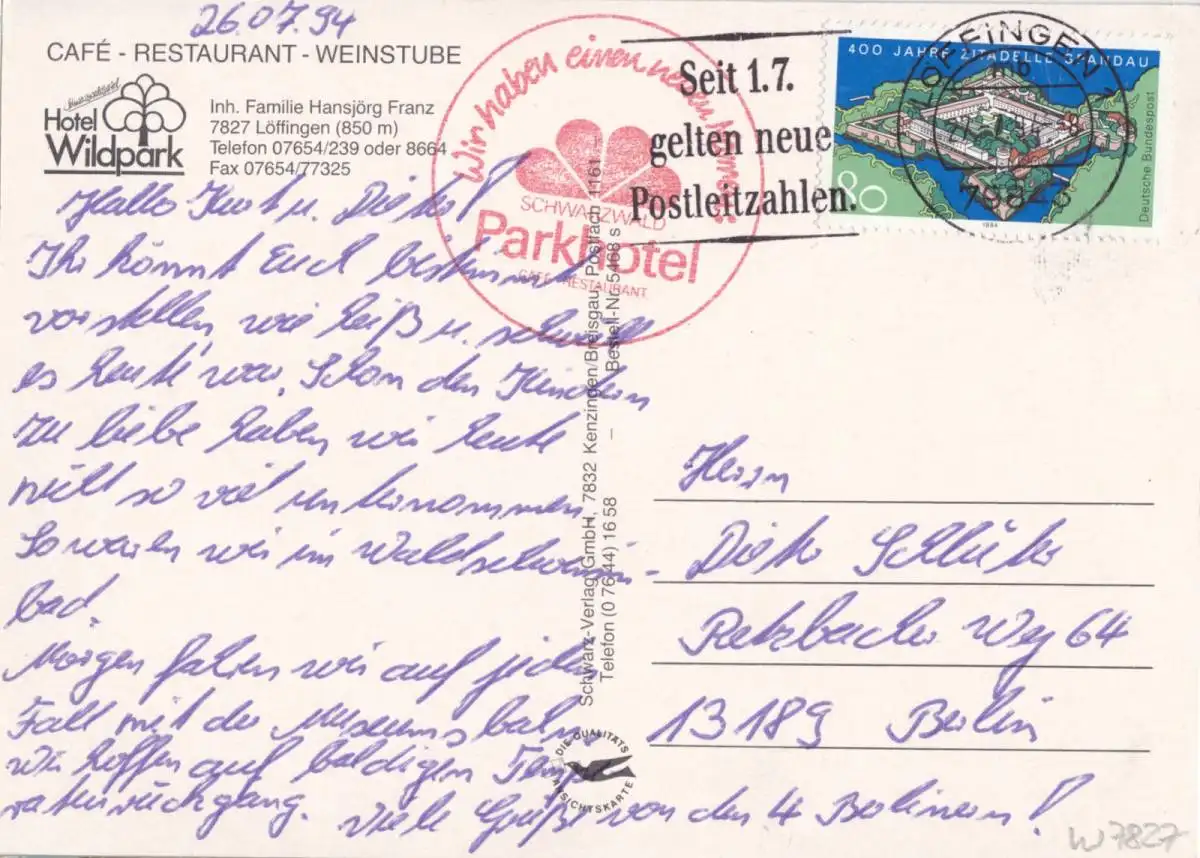 26.07.94
CAFÉ - RESTAURANT - WEINSTUBE
Hotel
Wildpark
Inh. Familie Hansjörg Franz
7827 Löffingen (850 m)
Telefon 07654/239 oder 8664
Fax 07654/77325
Wir haben einen neuen
SCHWARZWALD
Parkhotel
CAFE - RESTAURANT
Seit 1.7.
gelten neue
Postleitzahlen.
400 JAHRE ZITADELLE SPANDAU
80
Deutsche Bundespost
1994
LÖFFINGEN 1
mb
79843
Hallo Kurt u. Dieter!
Ihr könnt Euch bestimmt
vorstellen, wie heiß u. schwül
es heute war. Schon den Kindern
zu liebe haben wir heute
nicht so viel unternommen.
So waren wir im Waldschwimm-
bad.
Morgen fahren wir auf jeden
Fall mit der Museumsbahn.
Wir hoffen auf baldigen Tempe
raturrückgang. Viele Grüße von den 4 Berlinern!
Schwarz-Verlag GmbH, 7832 Kenzingen/Breisgau, Postfach 1161
Telefon (0 76 44) 16 58 – Bestell-Nr. 5468 s
DIE QUALITÄTS
ANSICHTSKARTE
Herrn
Dieter Schlüter
Retzbacher Weg 64
13189 Berlin
W7827